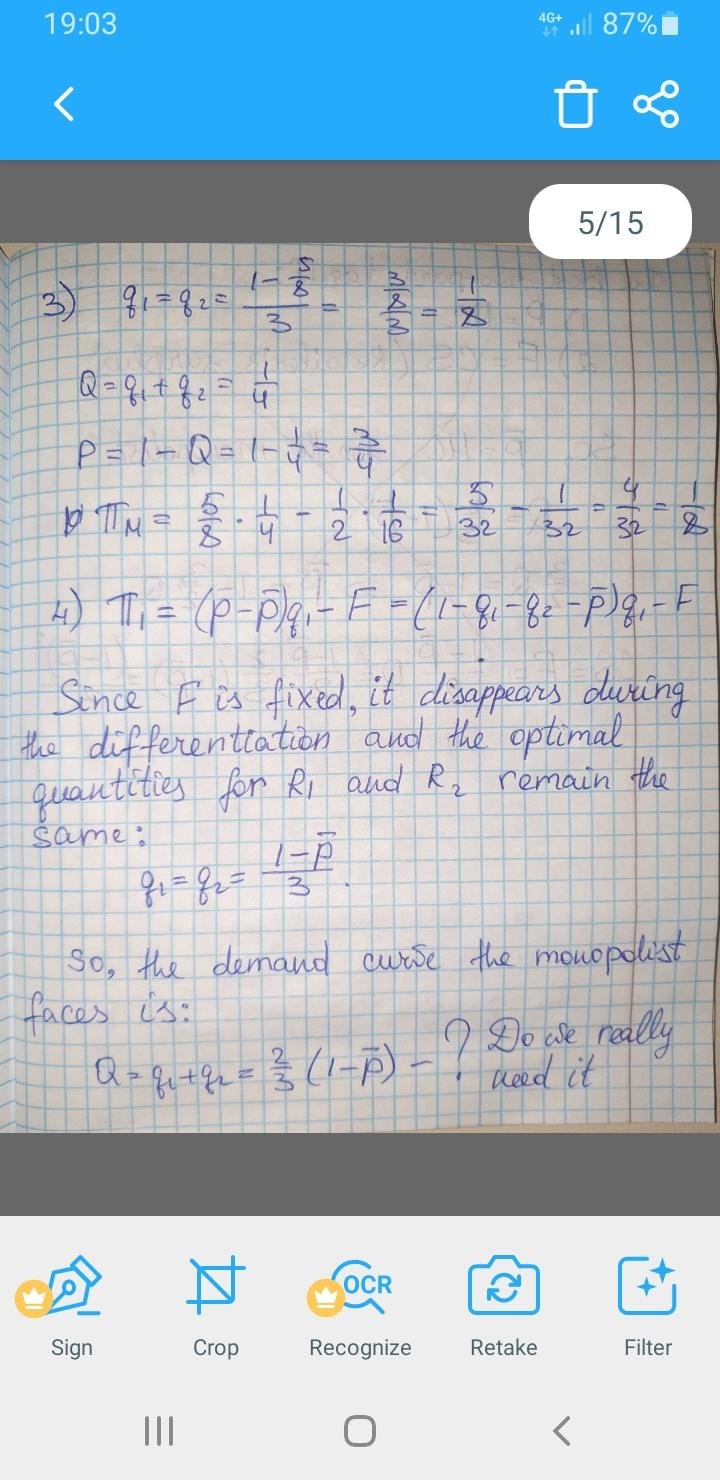 19:03 4G+ 87%
5/15
3) q₁ = q₂ = (1 - 5/8)/3 = (3/8)/3 = 1/8
Q = q₁ + q₂ = 1/4
P = 1 - Q = 1 - 1/4 = 3/4
π_M = 5/8 · 1/4 - 1/2 · 1/16 = 5/32 - 1/32 = 4/32 = 1/8
4) π₁ = (p - p̄)q₁ - F = (1 - q₁ - q₂ - p̄)q₁ - F
Since F is fixed, it disappears during
the differentiation and the optimal
quantities for R₁ and R₂ remain the
same:
q₁ = q₂ = (1 - p̄)/3.
So, the demand curve the monopolist
faces is:
Q = q₁ + q₂ = 2/3 (1 - p̄) - ? Do we really
need it
OCR
Sign Crop Recognize Retake Filter